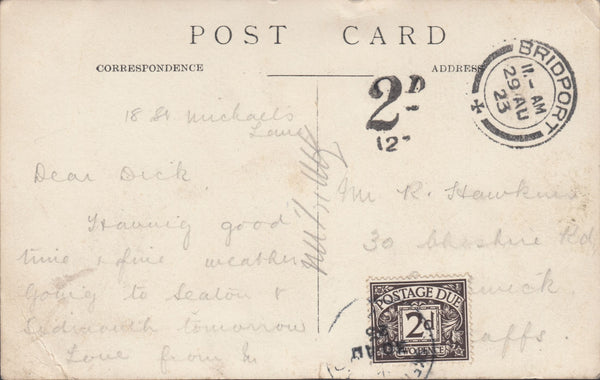 POST CARD
CORRESPONDENCE
ADDRESS
2D
12
BRIDPORT
11.- AM
29 AU
23
18 St Michael's
Lane
Dear Dick
Having good
time & fine weather
Going to Seaton &
Sidmouth tomorrow
Love from
Mr R. Hawkins
30 Cheshire Rd
POSTAGE DUE
2d
TWOPENCE